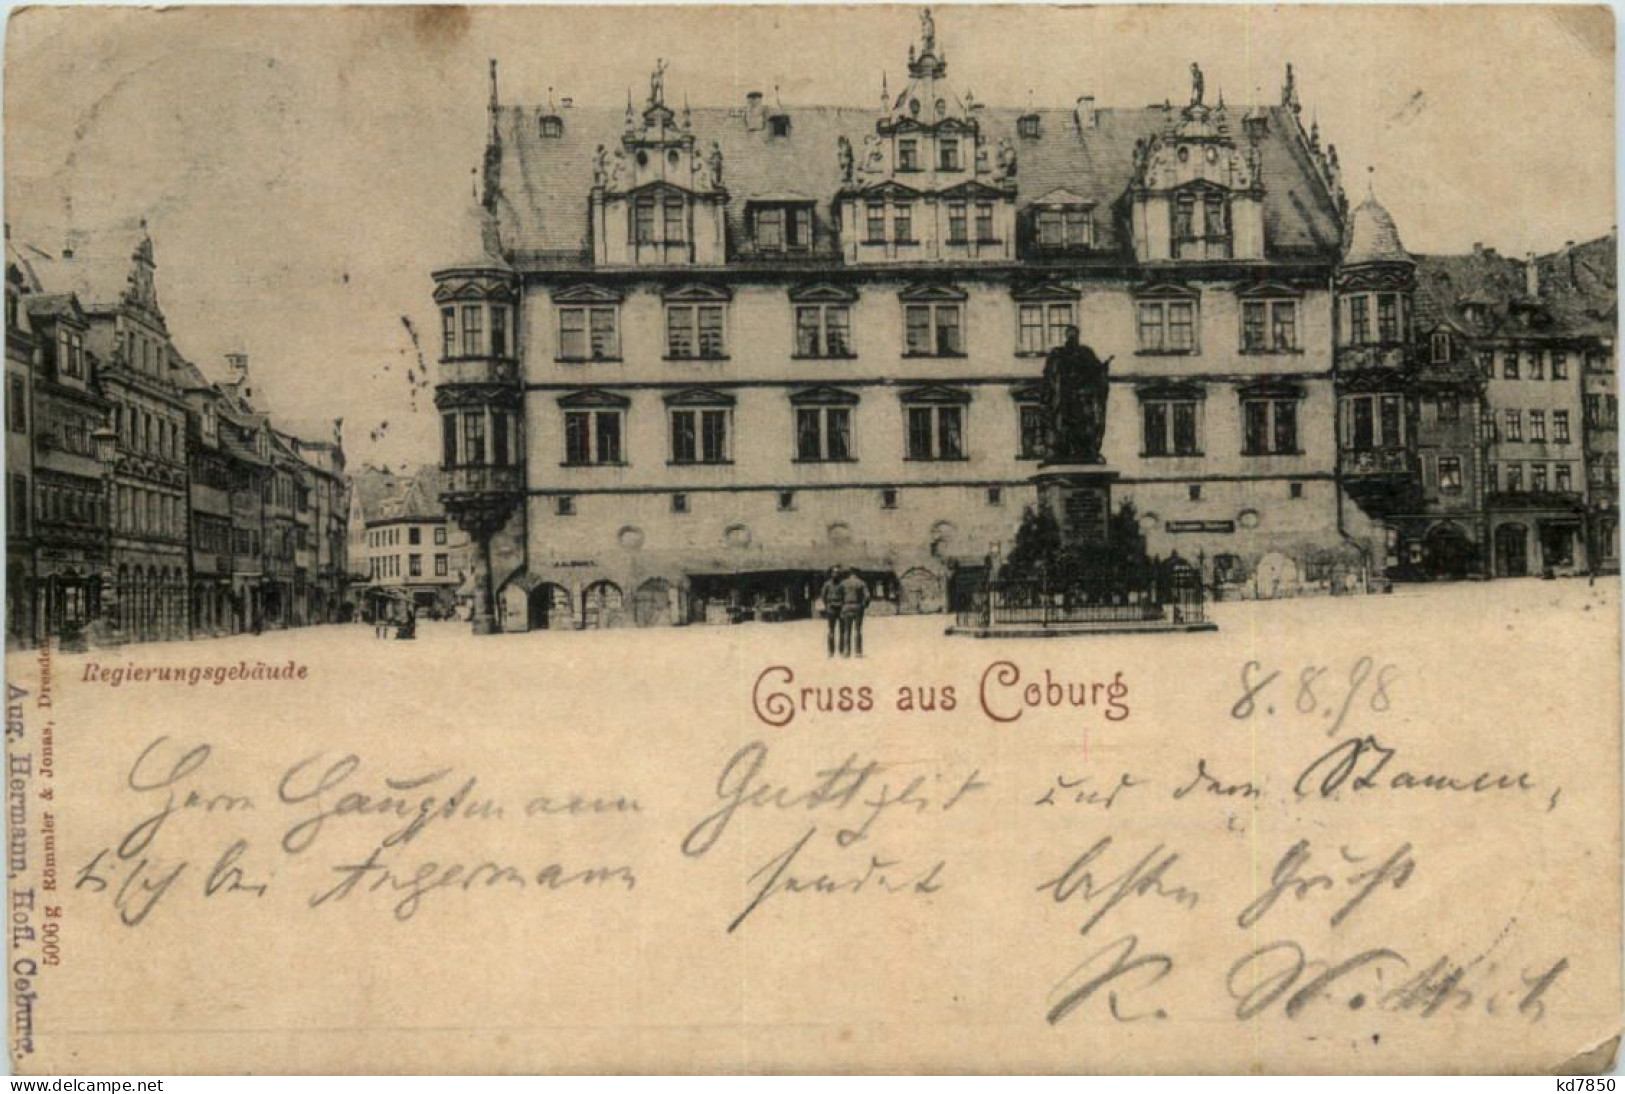 Regierungsgebäude
Gruss aus Coburg
8.8.98
Herrn Hauptmann Guttzeit und dem Stamm
tisch bei Angermann sendet besten Gruß
R. Wittich
5006 g Römmler & Jonas, Dresden
Aug. Hermann, Hofl. Coburg.
www.delcampe.net
kd7850